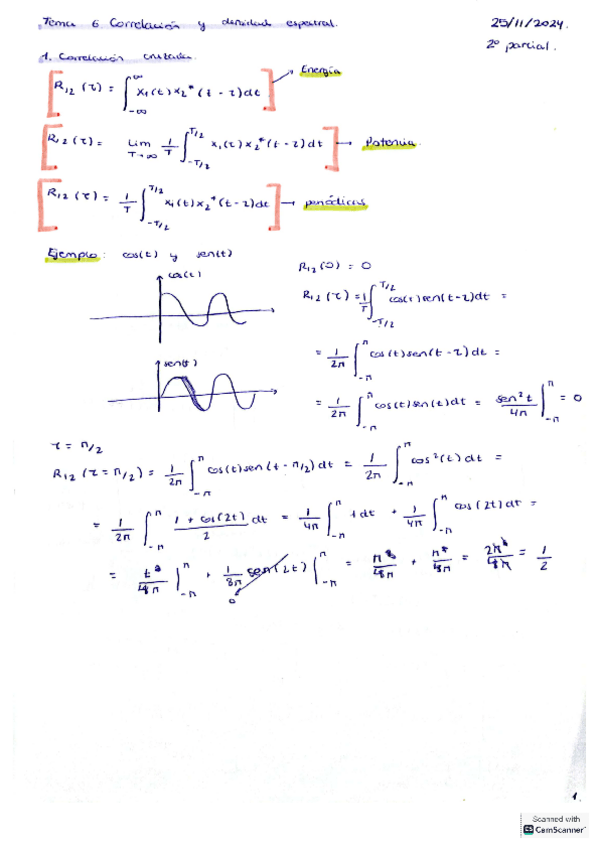 Tema 6 Correlación y densidad espectral. 25/11/2024.
2º parcial.
1. Correlación cruzada.
R12 (τ) = ∫_{-∞}^{∞} x1(t) x2* (t - τ) dt → Energía
R12 (τ) = Lim_{T→∞} 1/T ∫_{-T/2}^{T/2} x1(τ) x2* (t - τ) dt → Potencia.
R12 (τ) = 1/T ∫_{-T/2}^{T/2} x1(t) x2* (t - τ) dt → periódicas
Ejemplo: cos(t) y sen(t)
cos(t)
sen(t)
R12(0) = 0
R12 (τ) = 1/T ∫_{-T/2}^{T/2} cos(t) sen(t - τ) dt =
= 1/2π ∫_{-π}^{π} cos(t) sen(t - τ) dt =
= 1/2π ∫_{-π}^{π} cos(t) sen(t) dt = sen²t/4π |_{-π}^{π} = 0
τ = π/2
R12 (τ = π/2) = 1/2π ∫_{-π}^{π} cos(t) sen(t - π/2) dt = 1/2π ∫_{-π}^{π} cos²(t) dt =
= 1/2π ∫_{-π}^{π} 1 + cos(2t)/2 dt = 1/4π ∫_{-π}^{π} t dt + 1/4π ∫_{-π}^{π} cos(2t) dt =
= t/4π |_{-π}^{π} + 1/8π sen(2t) |_{-π}^{π} = π/4π + π/4π = 2π/4π = 1/2
0
1.
Scanned with
CS CamScanner